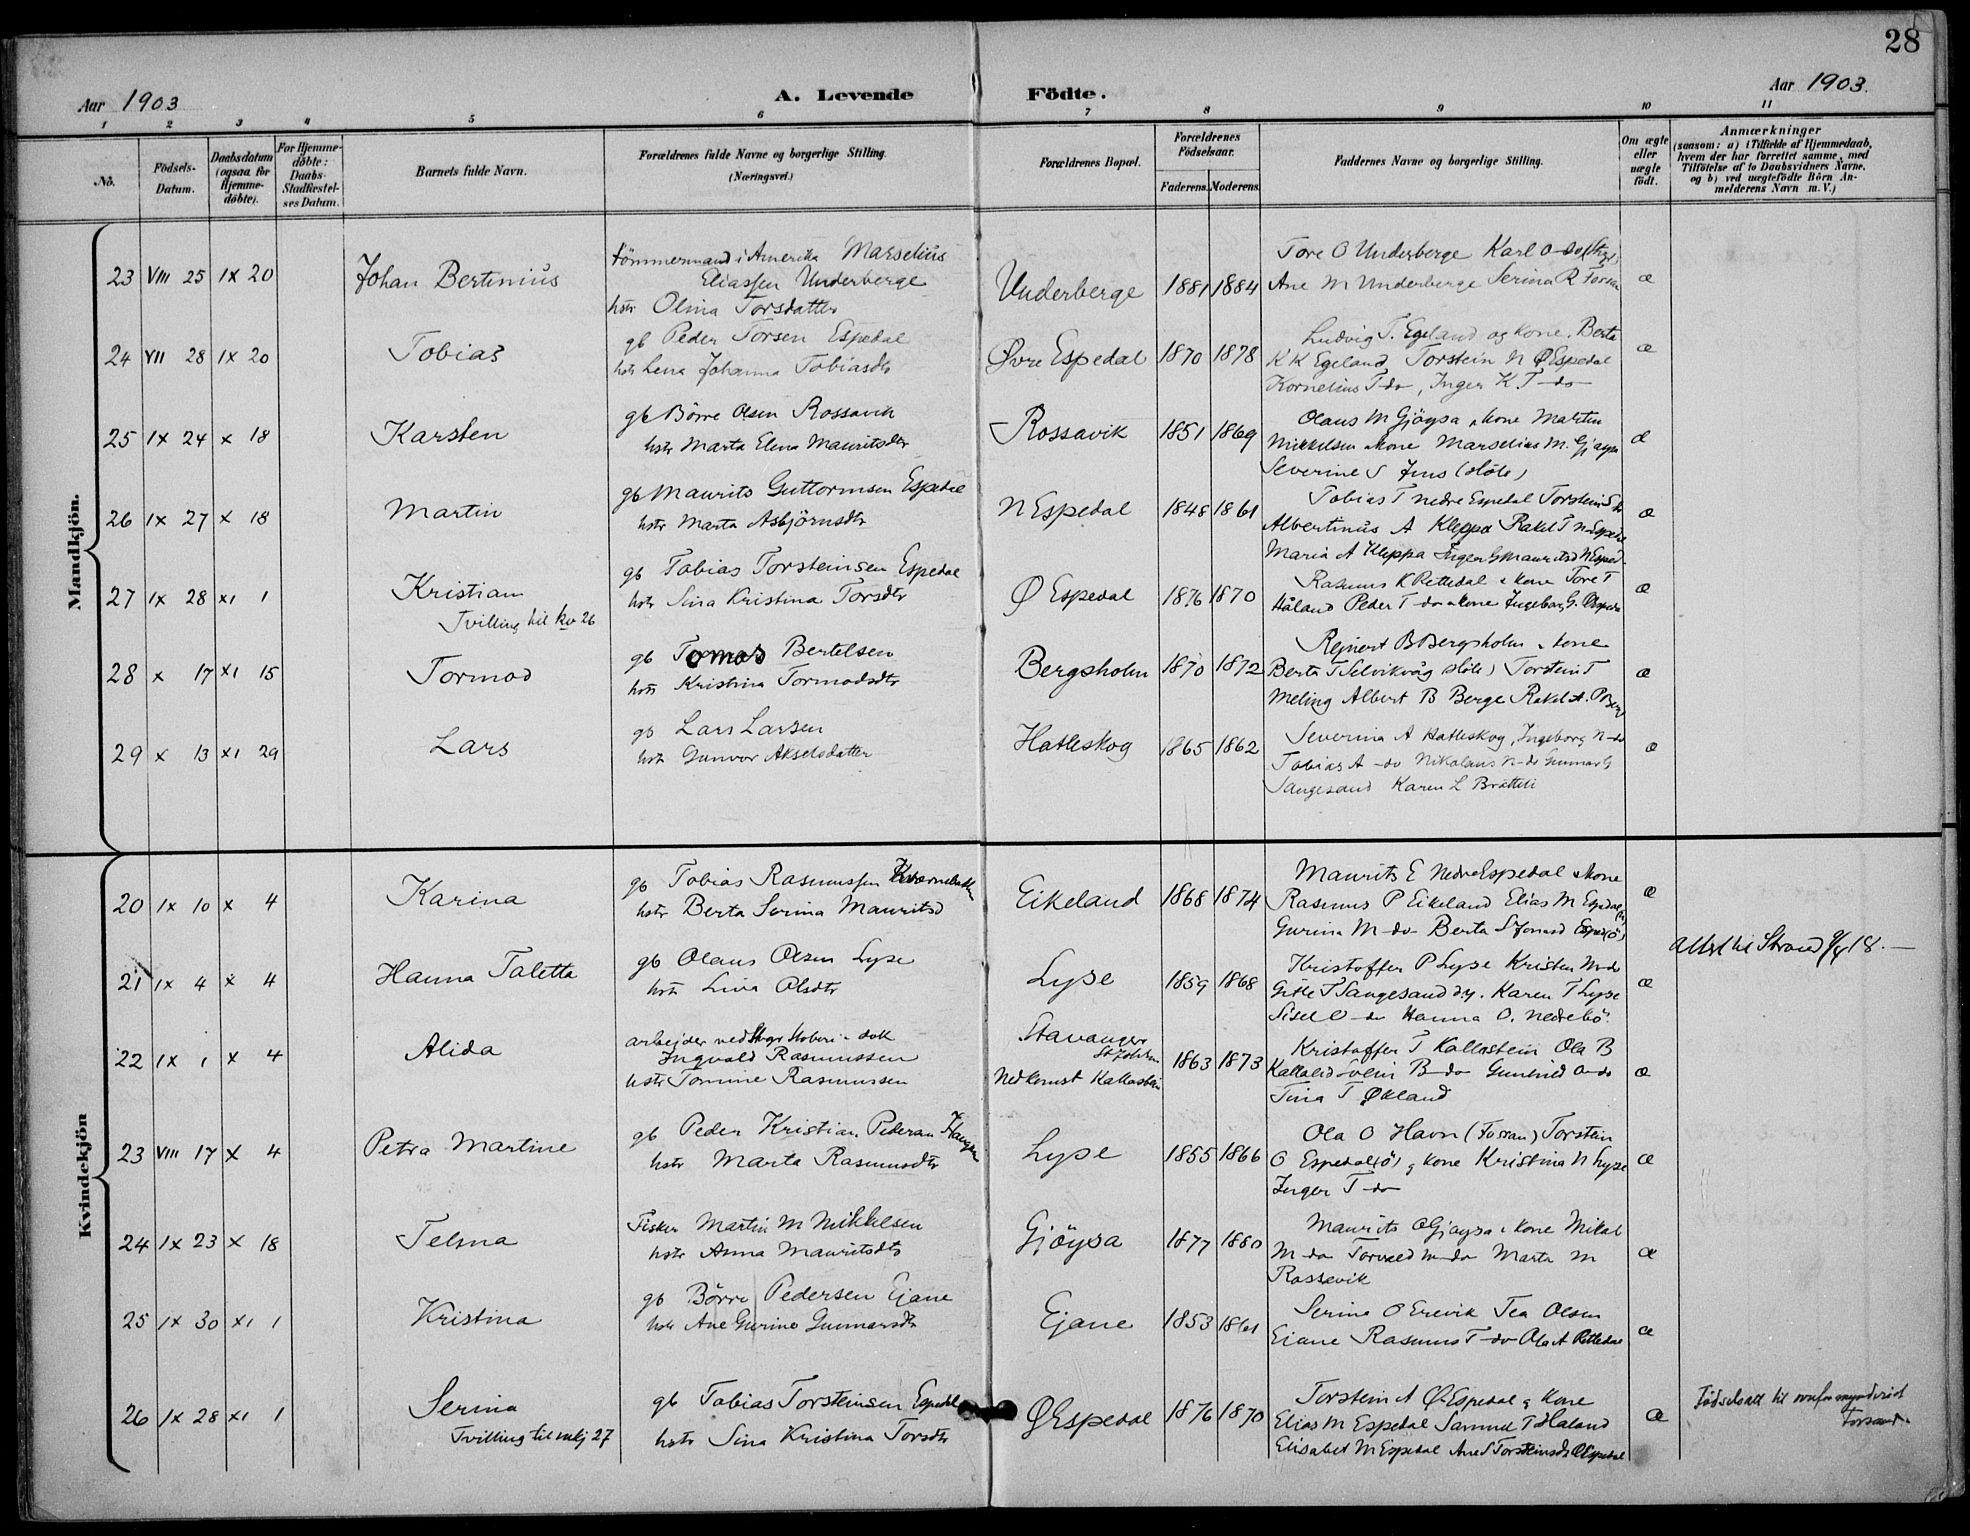 28
Aar 1903
A. Levende Födte.
Aar 1903.
1 2 3 4 5 6 7 8 9 10 11
No. Födsels-Datum. Daabsdatum (ogsaa for Hjemme-döbte). For Hjemme-döbte: Daabs-Stadfæstel-ses Datum. Barnets fulde Navn. Forældrenes fulde Navne og borgerlige Stilling. (Næringsvei.) Forældrenes Bopæl. Forældrenes Födselsaar. Faderens. Moderens. Faddernes Navne og borgerlige Stilling. Om ægte eller uægte födt. Anmærkninger (saasom: a) i Tilfælde af Hjemmedaab, hvem der har forrettet samme, med Tilföielse af to Daabsvidners Navne, og b) ved uægtefödte Börn An-melderens Navn m. V.)
Mandkjön.
23 VIII 25 IX 20 Johan Bertinius
Tömmermand i Amerika Marselius
Eliassen Underberge
hstr Olina Torsdatter
Underberge 1881 1884
Tore O Underberge Karl O do
Ane M Underberge Serina R Forsan
æ
24 VII 28 IX 20 Tobias
gb Peder Torsen Espedal
hstr Lena Johanna Tobiasdtr
Øvre Espedal 1870 1878
Ludvig T. Egeland og kone, Berta
K K Egeland, Torstein N Ø Espedal
Kornelius T do, Inger K T do
æ
25 IX 24 X 18 Karsten
gb Börre Olsen Rossavik
hstr Marta Elena Mauritsdtr
Rossavik 1851 1869
Olaus M Gjöysa & kone Martin
Mikkelsen & kone Marselius M. Gjøysa
Severine S Jens (Høle)
æ
26 IX 27 X 18 Martin
gb Maurits Guttormsen Espedal
hstr Marta Asbjörnsdtr
N Espedal 1848 1861
Tobias T nedre Espedal Torstein
Albertinus A Kleppa Rakel T N Espedal
Maria A Kleppa Inger G Mauritsd N Esped
æ
27 IX 28 XI 1 Kristian
Tvilling til kv 26
gb Tobias Torsteinsen Espedal
hstr Sina Kristina Torsdtr
Ø Espedal 1876 1870
Rasmus K Rettedal & kone Tore T
Håland Peder T do & kone Ingeborg G. Ø Espeda
æ
28 X 17 XI 15 Tormod
gb Tomas Bertelsen
hstr Kristina Tormodsdtr
Bergsholm 1870 1872
Rejnert B Bergsholm & kone
Berta T Selvikvåg (Høle) Torstein T
Meling Albert B Berge Rakel A. P Berge
æ
29 X 13 XI 29 Lars
gb Lars Larsen
hstr Gunvor Akselsdatter
Hatleskog 1865 1862
Severina A Hatleskog, Ingeborg N do
Tobias A do Nikolaus N do Gunnar G
Sangesand Karen L Bratteli
æ
Kvindekjön
20 IX 10 X 4 Karina
gb Tobias Rasmussen
hstr Berta Serina Mauritsd
Eikeland 1868 1874
Maurits E Nedre Espedal & kone
Rasmus P Eikeland Elias M Espedal
Gurina M do Berta S Espe(ö)
æ
21 IX 4 X 4 Hanna Taletta
gb Olaus Olsen Lyse
hstr Lina Olsdtr
Lyse 1859 1868
Kristoffer P Lyse Kristen M do
Gitle T Sangesand d.y. Karen T Lyse
Sisel O do Hanna O. Nedrebö.
æ
Attest til Strand 9/4 18.—
22 IX 1 X 4 Alida
arbejder ved Stvgr Stoberi & dok
Ingvald Rasmussen
hstr Tomine Rasmussen
Stavanger
St. Johannes
Nedkomst Kallastein
1863 1873
Kristoffer T Kallastein Ola B
Kallalid Solvi B do Gunhild O do
Tina T Økland
æ
23 VIII 17 X 4 Petra Martine
gb Peder Kristian Pedersen Haugen
hstr Marta Rasmusdtr
Lyse 1855 1866
Ola O Havn (Fossan) Torstein
O Espedal (ö) & kone Kristina N Lyse
Inger T do
æ
24 IX 23 X 18 Telma
Fisker Martin M Mikkelsen
hstr Anna Mauritsdtr
Gjöysa 1877 1880
Maurits O Gjøysa & kone Mikal
M do Torvald M do Marta M
Rossavik
æ
25 IX 30 XI 1 Kristina
gb Börre Pedersen Ejane
hstr Ane Gurine Gunnarsdtr
Ejane 1853 1861
Serina O Erevik Tea Olsen
Eiane Rasmus T do Ola A Rettedal
æ
26 IX 28 XI 1 Serina
Tvilling til mkj 27
gb Tobias Torsteinsen Espedal
hstr Sina Kristina Torsdtr
Ø Espedal 1876 1870
Torstein A Ø Espedal & kone
Elias M Espedal Samuel T Håland
Elisabet M Espedal Ane S Torsteinsdtr Ø Espedal
æ
Fødselsatt til
Forsand.